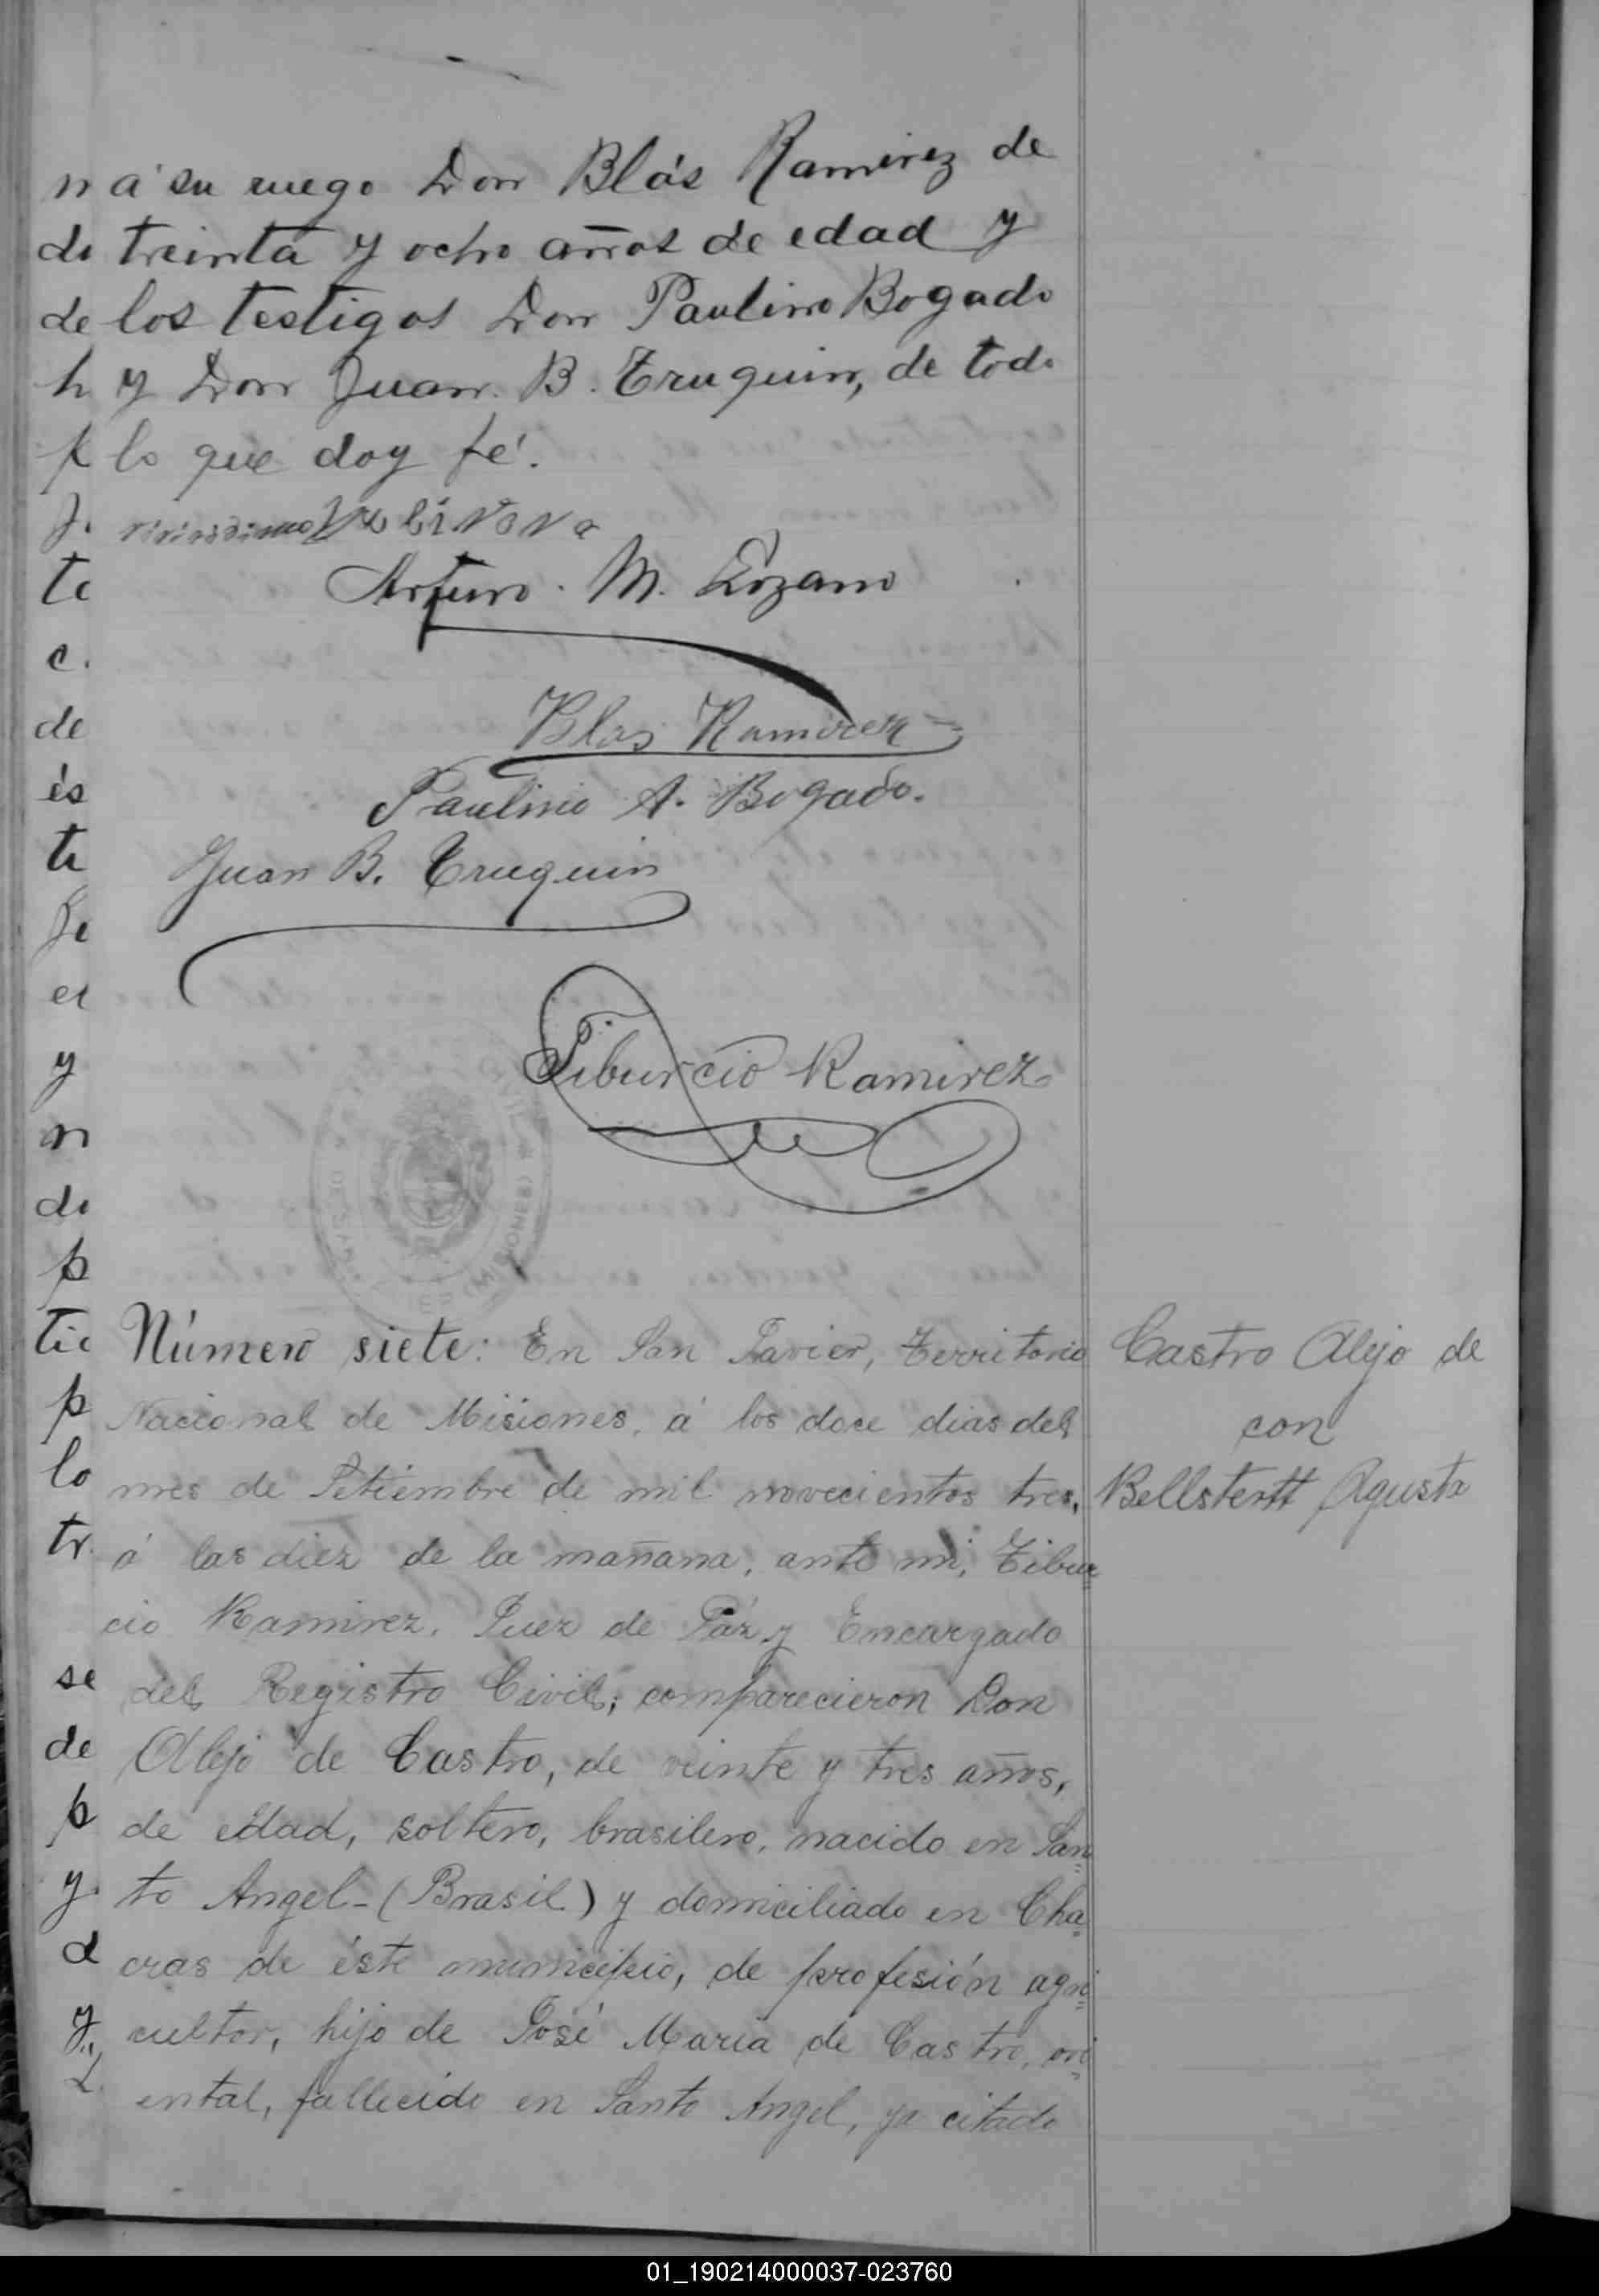 á su ruego Don Blás Ramirez de
treinta y ocho años de edad y
los testigos Don Paulino Bogado
y Don Juan. B. Truquin, de todo
lo que doy fé.
Arturo. M. Lozano
Blas Ramirez
Paulino A. Bogado.
Juan B. Truquin
Tiburcio Ramirez
Número siete: En San Javier, Territorio
Nacional de Misiones, á los doce dias del
mes de Setiembre de mil novecientos tres,
á las diez de la mañana, ante mi, Tibur=
cio Ramirez, Juez de Páz y Encargado
del Registro Civil; comparecieron Don
Alejo de Castro, de veinte y tres años,
de edad, soltero, brasilero, nacido en San=
to Angel-(Brasil) y domiciliado en Cha=
cras de éste municipio, de profesión agri=
cultor, hijo de José Maria de Castro, ori=
ental, fallecido en Santo Angel, ya citado
Castro Alejo de
con
Bellstertt Agusta
01_190214000037-023760